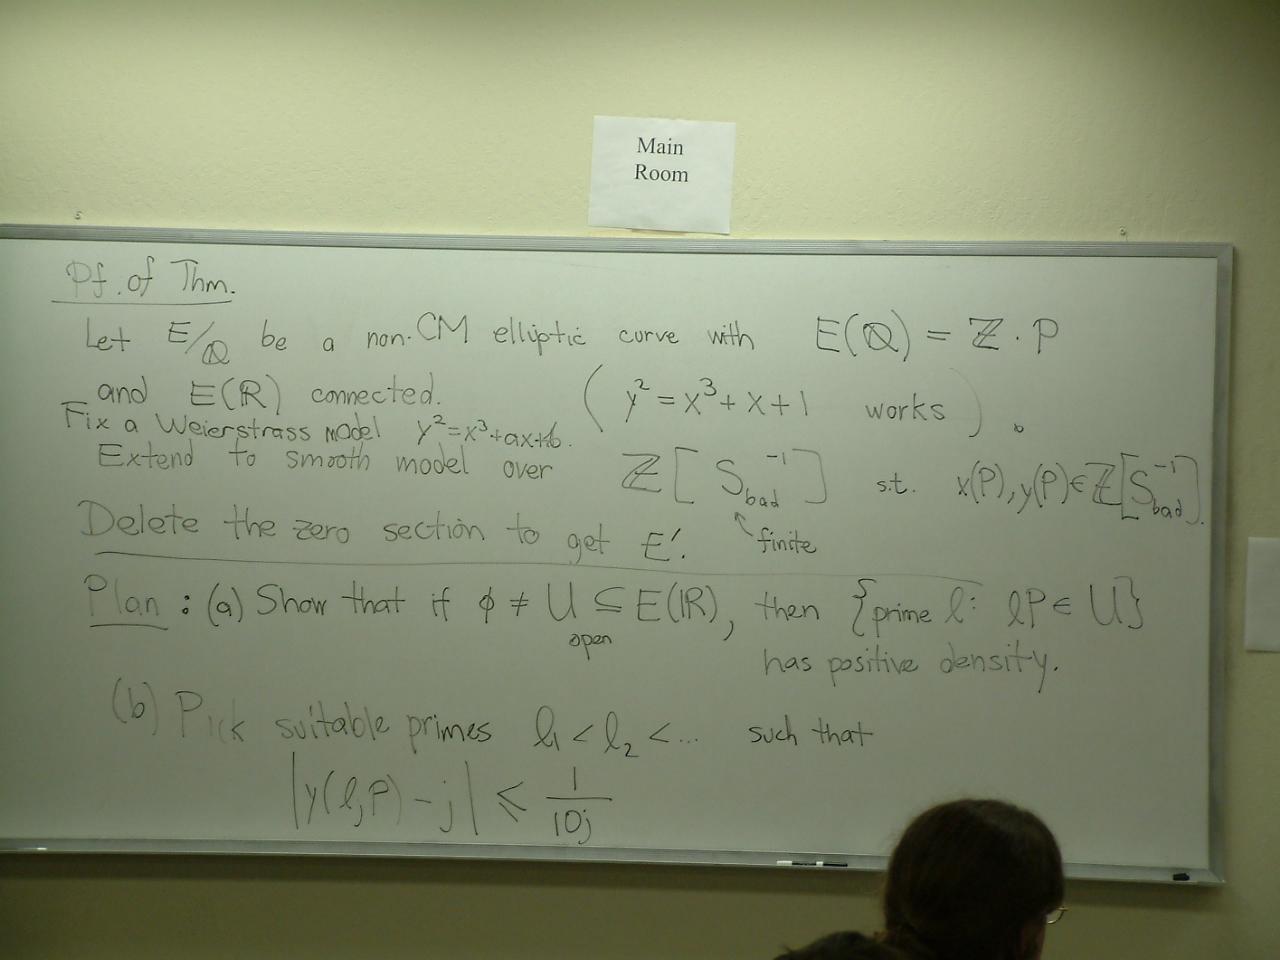 Main
Room
Pf. of Thm.
Let E/ℚ be a non-CM elliptic curve with E(ℚ) = ℤ · P
and E(ℝ) connected. (y² = x³ + x + 1 works).
Fix a Weierstrass model y² = x³ + ax + b.
Extend to smooth model over ℤ[S_bad⁻¹] s.t. x(P), y(P) ∈ ℤ[S_bad⁻¹].
finite
Delete the zero section to get E'.
Plan: (a) Show that if ϕ ≠ U ⊆ E(ℝ), then {prime ℓ: ℓP ∈ U}
open
has positive density.
(b) Pick suitable primes ℓ₁ < ℓ₂ < ... such that
|y(ℓⱼP) - j| ≤ 1/10j